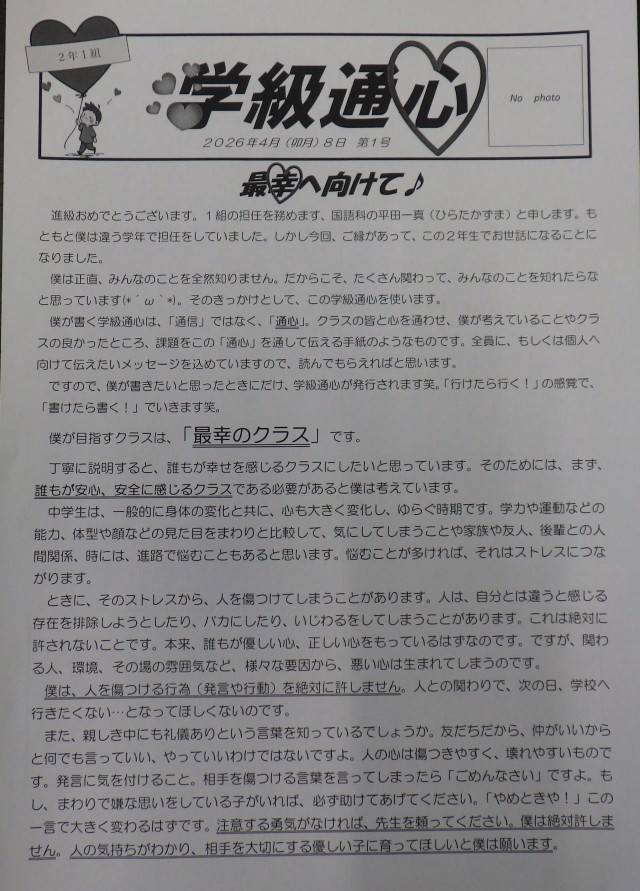 2年1組
学級通心
No photo
2026年4月（卯月）8日 第1号
最幸へ向けて♪
進級おめでとうございます。1組の担任を務めます、国語科の平田一真（ひらたかずま）と申します。も
ともと僕は違う学年で担任をしていました。しかし今回、ご縁があって、この2年生でお世話になることに
なりました。
僕は正直、みんなのことを全然知りません。だからこそ、たくさん関わって、みんなのことを知れたらな
と思っています(*´ω｀*)。そのきっかけとして、この学級通心を使います。
僕が書く学級通心は、「通信」ではなく、「通心」。クラスの皆と心を通わせ、僕が考えていることやクラ
スの良かったところ、課題をこの「通心」を通して伝える手紙のようなものです。全員に、もしくは個人へ
向けて伝えたいメッセージを込めていますので、読んでもらえればと思います。
ですので、僕が書きたいと思ったときにだけ、学級通心が発行されます笑。「行けたら行く！」の感覚で、
「書けたら書く！」でいきます笑。
僕が目指すクラスは、「最幸のクラス」です。
丁寧に説明すると、誰もが幸せを感じるクラスにしたいと思っています。そのためには、まず、
誰もが安心、安全に感じるクラスである必要があると僕は考えています。
中学生は、一般的に身体の変化と共に、心も大きく変化し、ゆらぐ時期です。学力や運動などの
能力、体型や顔などの見た目をまわりと比較して、気にしてしまうことや家族や友人、後輩との人
間関係、時には、進路で悩むこともあると思います。悩むことが多ければ、それはストレスにつな
がります。
ときに、そのストレスから、人を傷つけてしまうことがあります。人は、自分とは違うと感じる
存在を排除しようとしたり、バカにしたり、いじわるをしてしまうことがあります。これは絶対に
許されないことです。本来、誰もが優しい心、正しい心をもっているはずなのです。ですが、関わ
る人、環境、その場の雰囲気など、様々な要因から、悪い心は生まれてしまうのです。
僕は、人を傷つける行為（発言や行動）を絶対に許しません。人との関わりで、次の日、学校へ
行きたくない…となってほしくないのです。
また、親しき中にも礼儀ありという言葉を知っているでしょうか。友だちだから、仲がいいから
と何でも言っていい、やっていいわけではないですよ。人の心は傷つきやすく、壊れやすいもので
す。発言に気を付けること。相手を傷つける言葉を言ってしまったら「ごめんなさい」ですよ。も
し、まわりで嫌な思いをしている子がいれば、必ず助けてあげてください。「やめときや！」この
一言で大きく変わるはずです。注意する勇気がなければ、先生を頼ってください。僕は絶対許しま
せん。人の気持ちがわかり、相手を大切にする優しい子に育ってほしいと僕は願います。